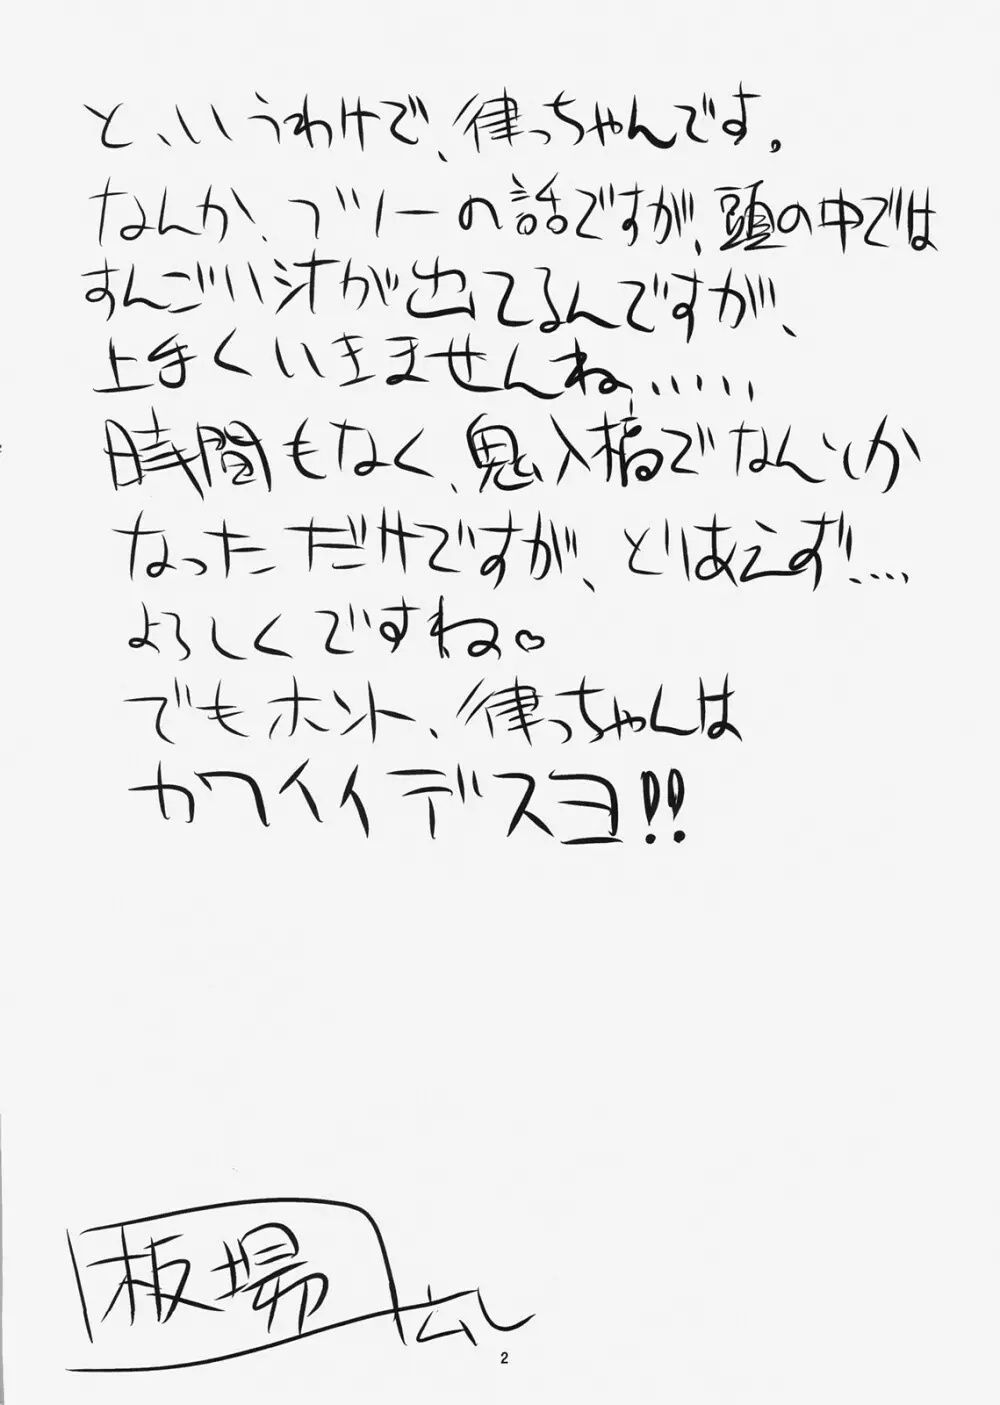 と、いうわけで、律っちゃんです。
なんか、ブルーの話ですが、頭の中では
すんごい汁が出てるんですが、
上手くいきませんね、……
時間もなく、鬼入稿でなんとか
なっただけですが、とりあえず!…
よろしくですね♡
でもホント、律っちゃんは
カワイイデスヨ!!
板場広し
2